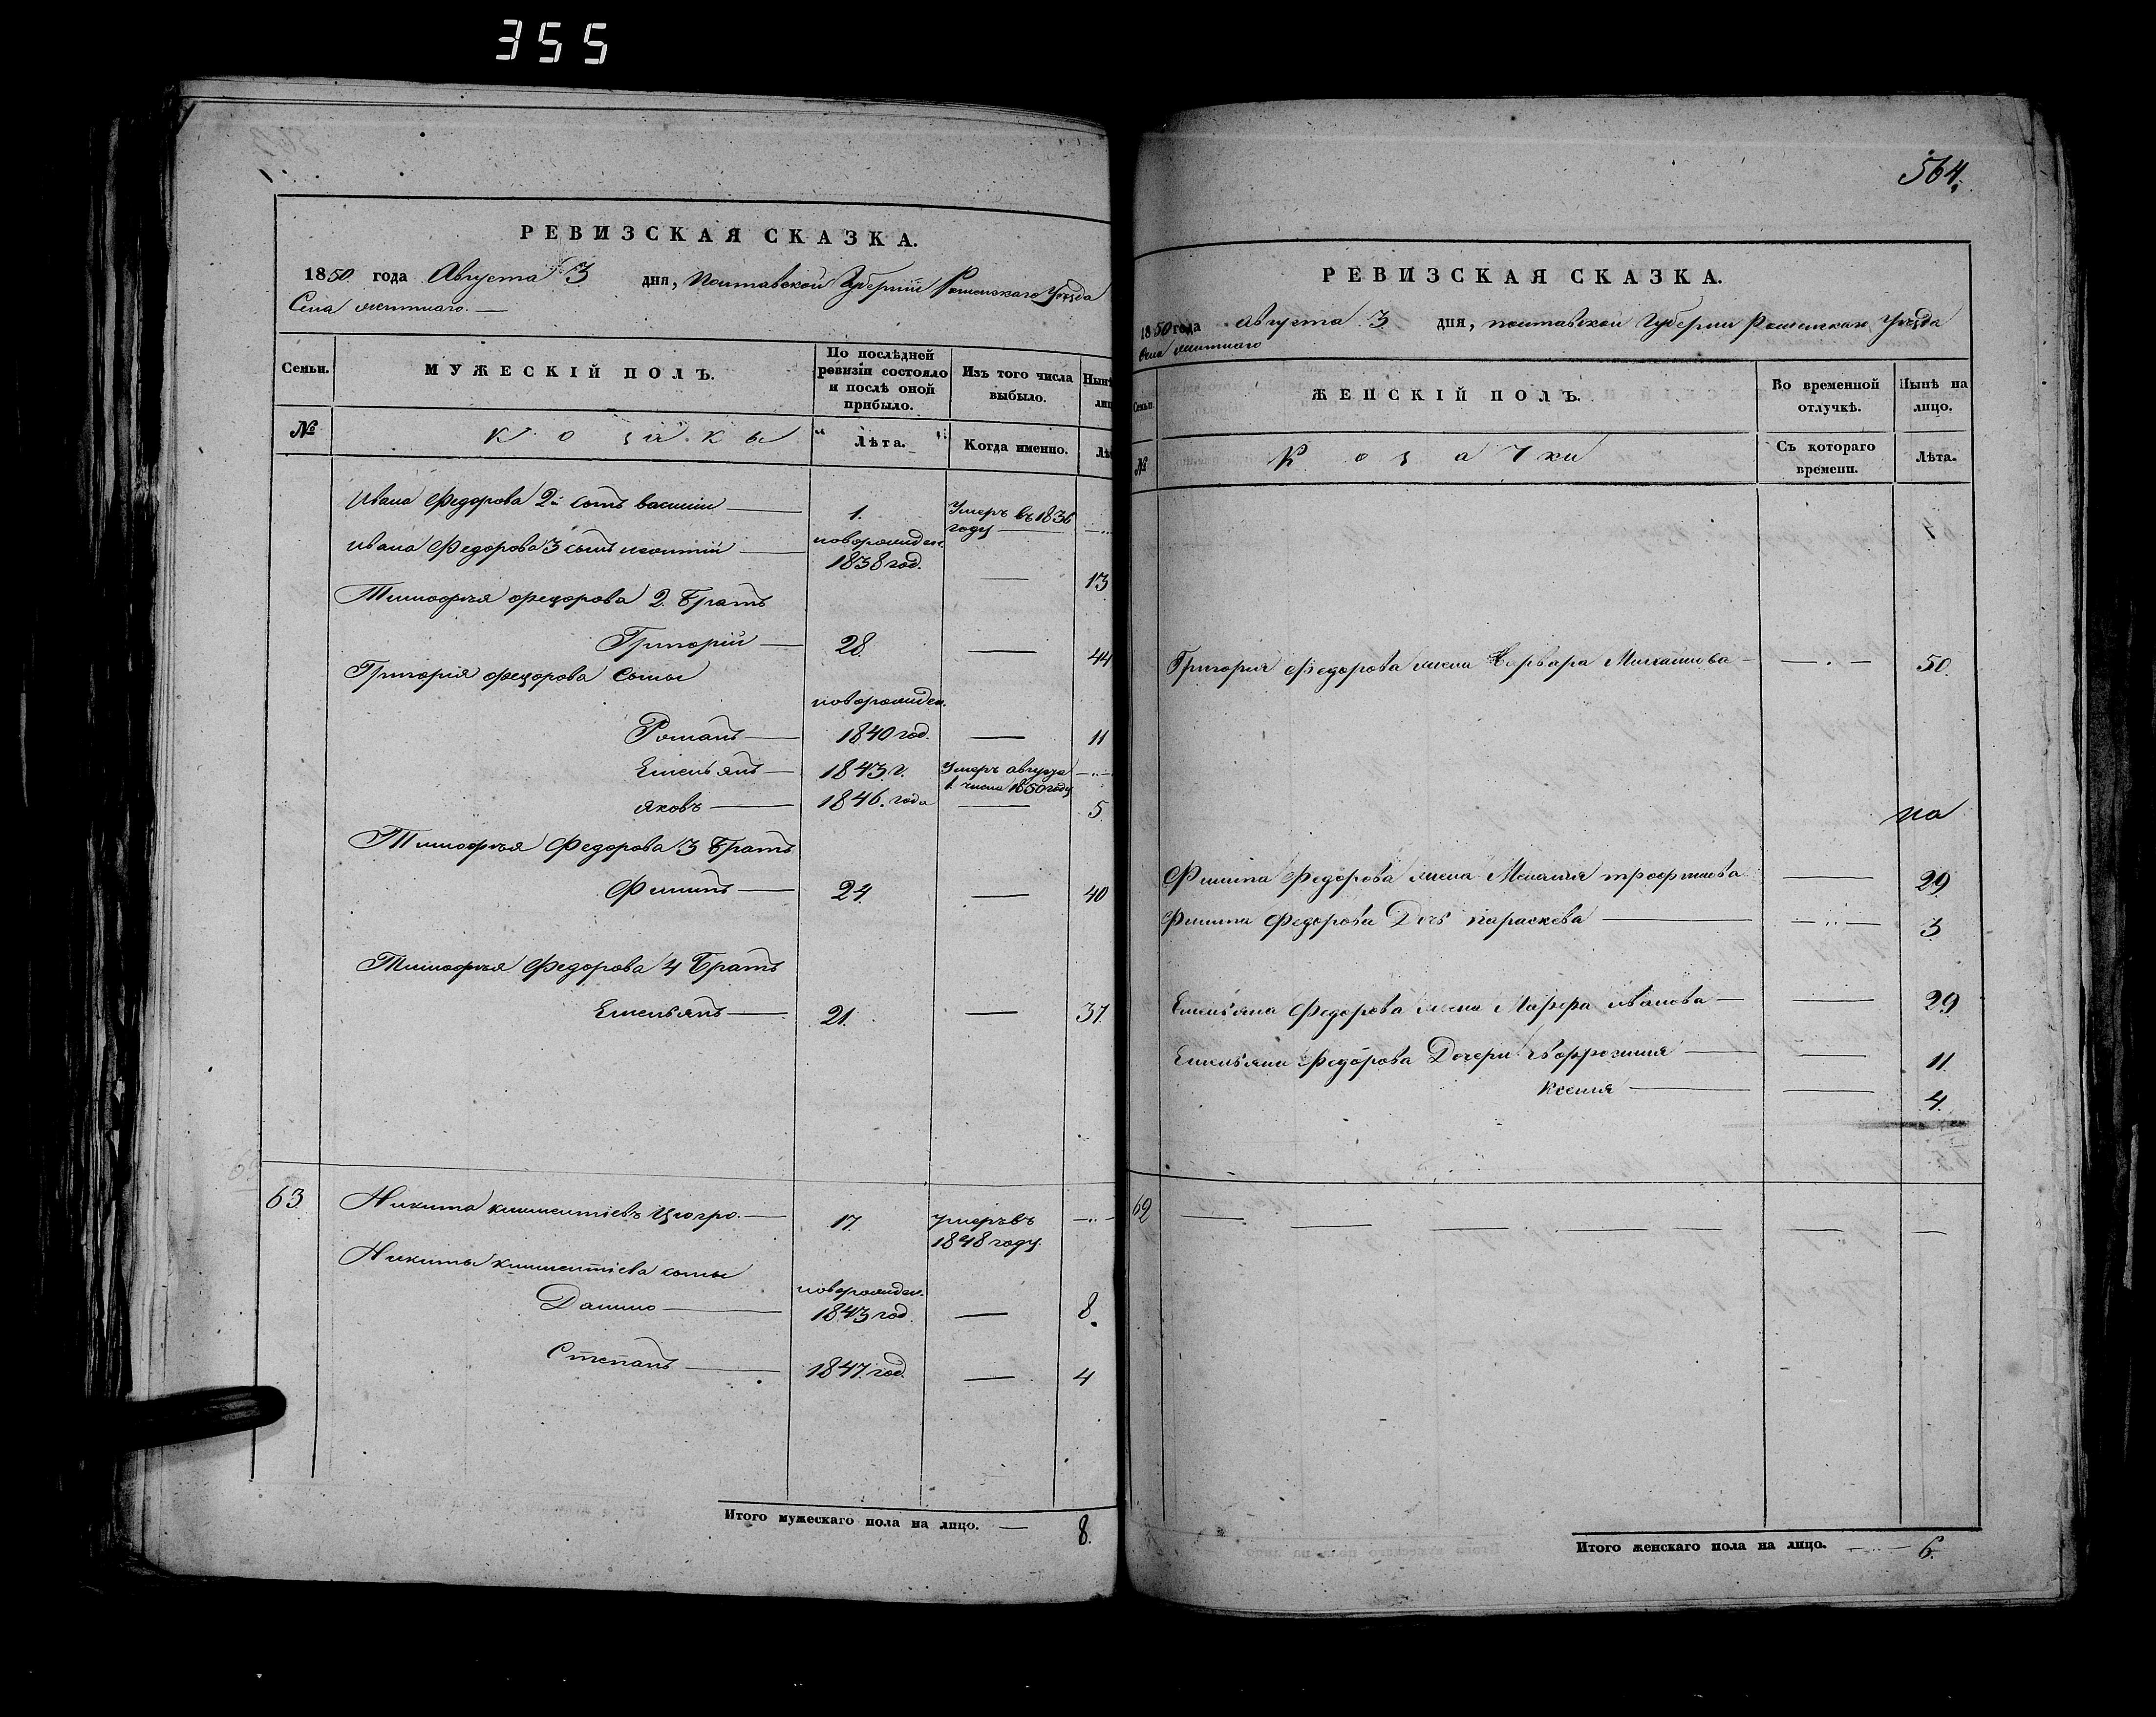 355
РЕВИЗСКАЯ СКАЗКА.
1850 года Августа 3 дня, Полтавской Губерніи Роменскаго Уѣзда
Села
Семьи.
МУЖЕСКІЙ ПОЛЪ.
По послѣдней ревизіи состояло и послѣ оной прибыло.
Изъ того числа выбыло.
Нынѣ
№
Козаки
Лѣта.
Когда именно.
Лѣ
Ивана Федорова 2й сынъ василий — 1. Умеръ въ 1836 году —
Ивана Федорова 3 сынъ леонтій — новорожден. 1838 год. — 13
Тимофѣя Федорова 2. Братъ
Григорій — 28. — 44
Григорія Федорова Сыны
новорожден.
Романъ — 1840 год. — 11
Емельянъ — 1843 г. Умеръ августа 1. числа 1850 году
яковъ — 1846. года — 5
Тимофѣя Федорова 3 Братъ
Филипъ — 24 — 40
Тимофѣя Федорова 4 Братъ
Емельянъ — 21. — 37
63 Никита климентіевъ — 17. умеръ въ 1848 году.
Никиты климентіева сыны
Данило — новорожден. 1843 год. — 8.
Степанъ — 1847. год. — 4
Итого мужескаго пола на лицо. — 8.
564,
РЕВИЗСКАЯ СКАЗКА.
1850 года Августа 3 дня, полтавской Губернии Роменскаго Уѣзда
Села
Семьи.
ЖЕНСКІЙ ПОЛЪ.
Во временной отлучкѣ.
Нынѣ на лицо.
№
Козачки
Съ котораго времени.
Лѣта.
Григория Федорова жена Варвара Михайлова — 50.
на
Филипа Федорова жена Меланія трофимова — 29
Филипа Федорова Дочь параскева — 3
Емельяна Федорова жена Марфа иванова — 29
Емельяна Федорова Дочери — 11
Ксенія — 4.
62
Итого женскаго пола на лицо. — 6.